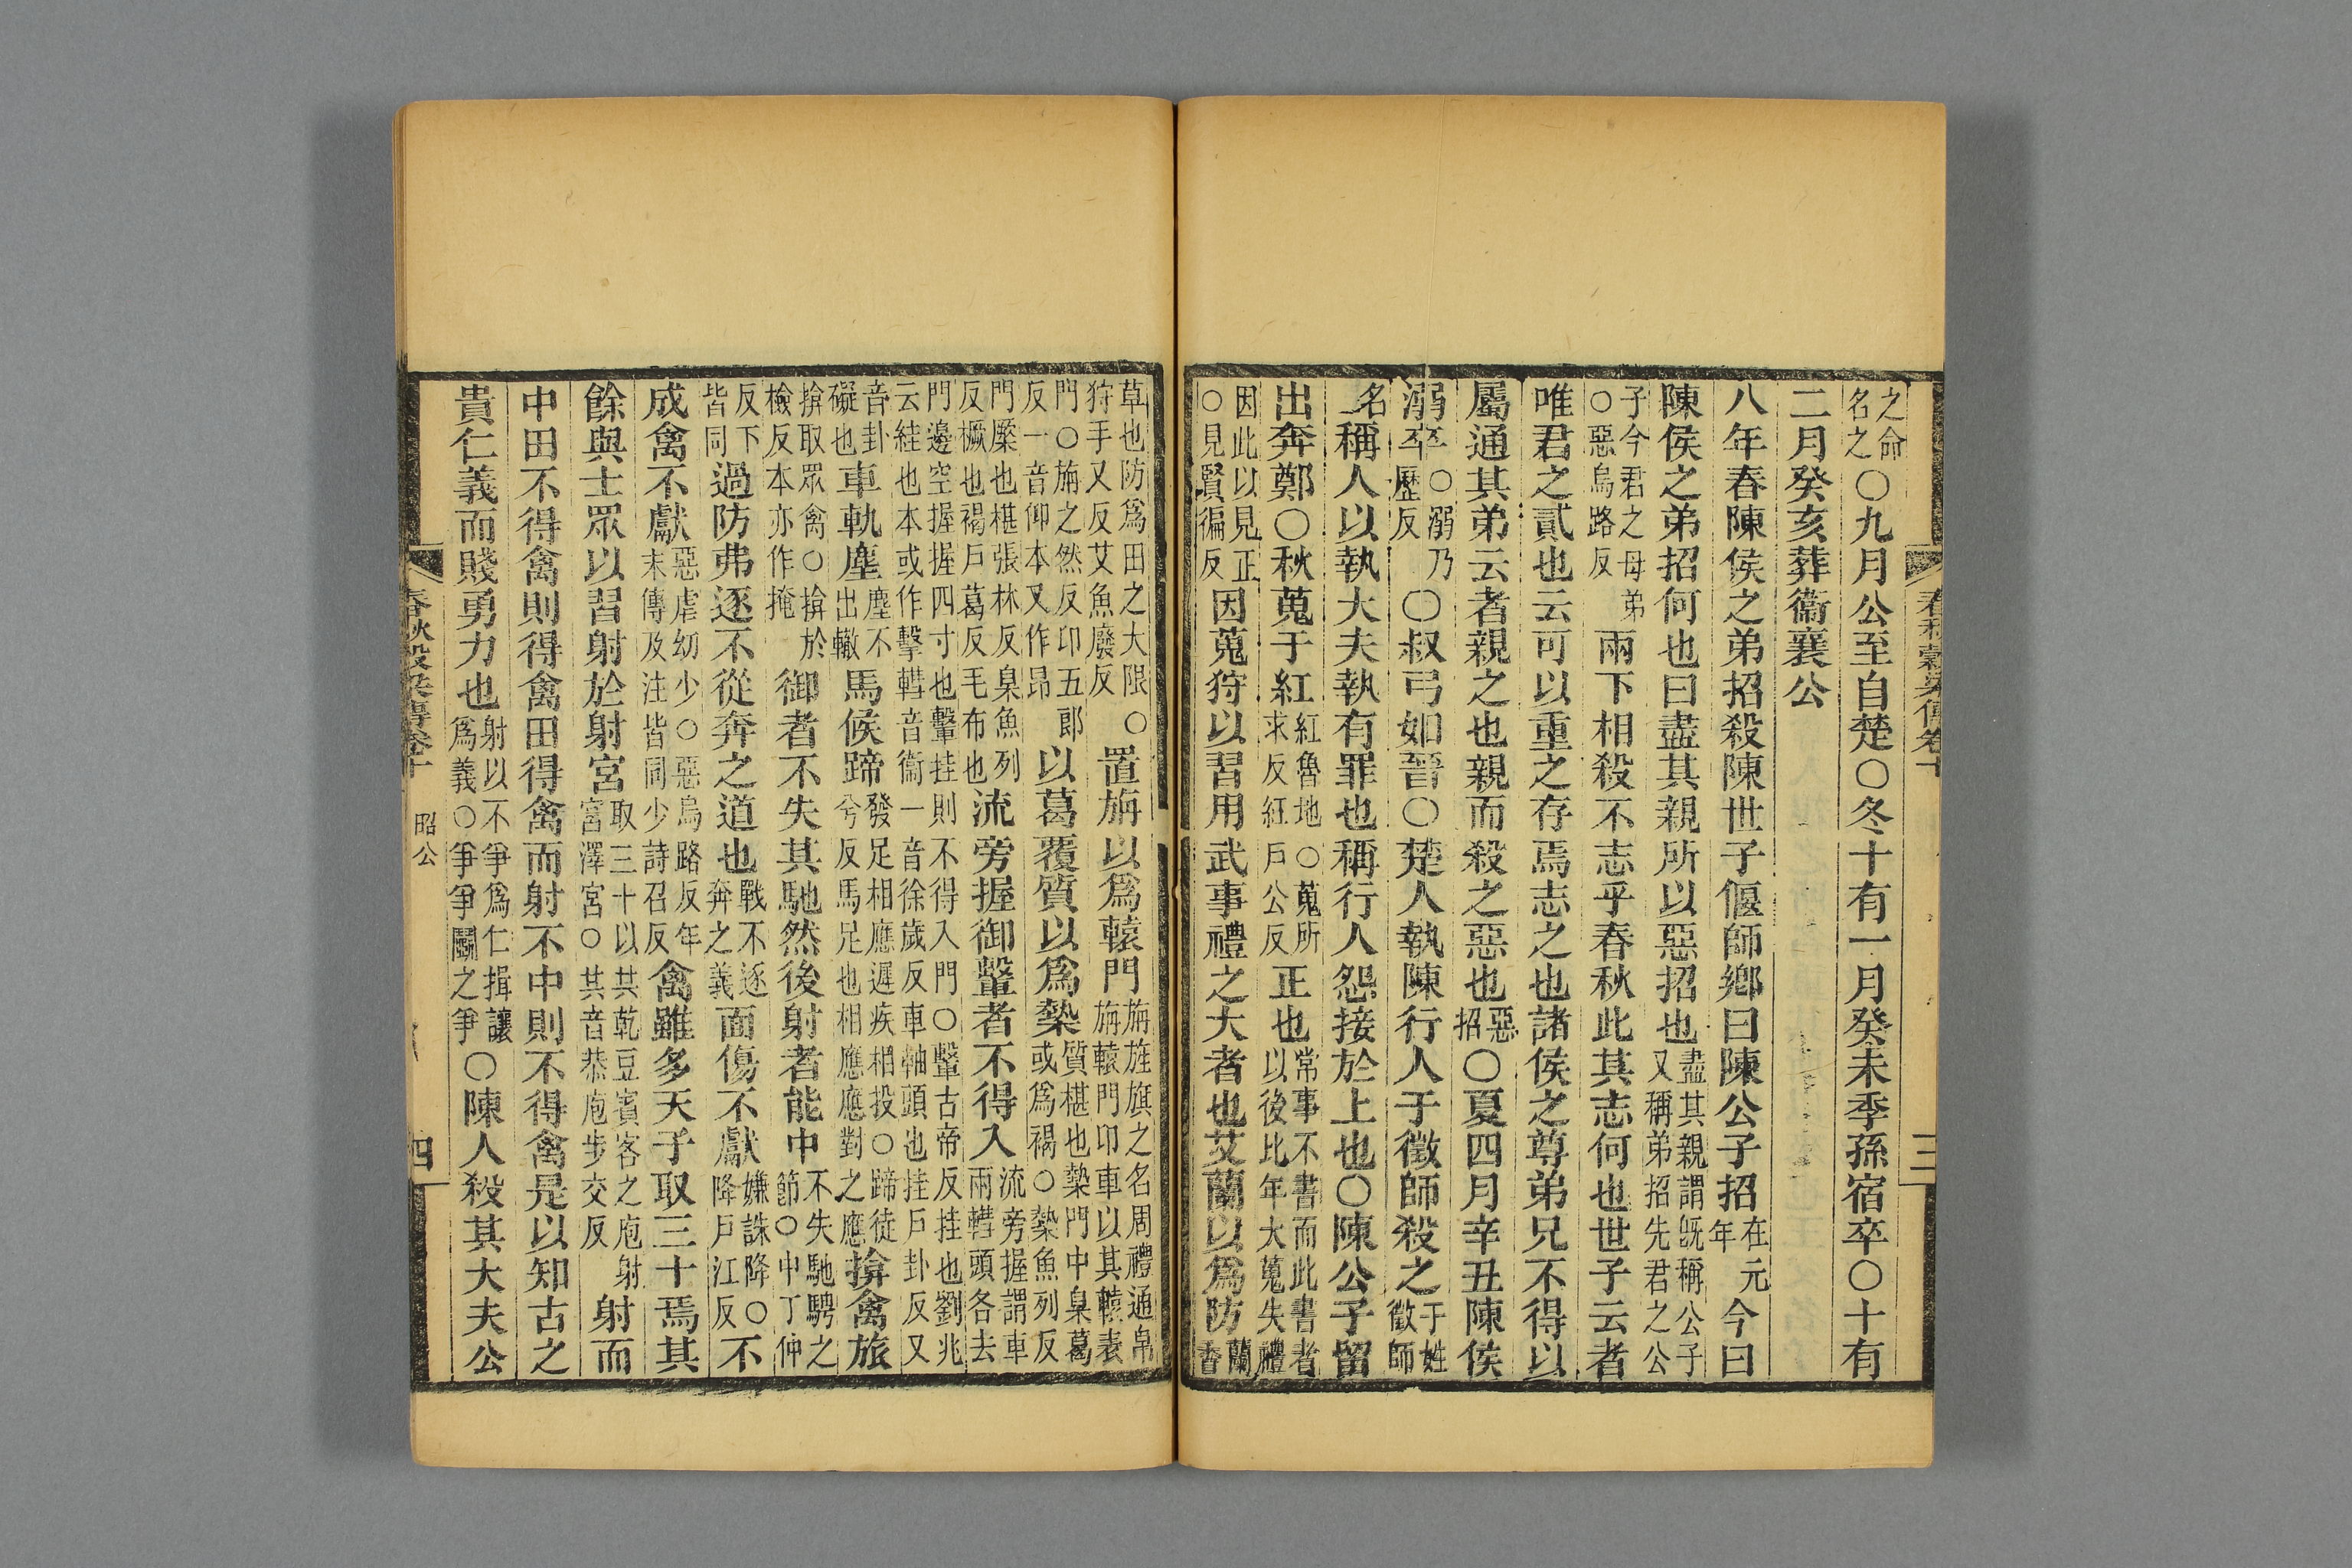 春秋穀梁傳卷十
三
之命名之○九月公至自楚○冬十有一月癸未季孫宿卒○十有
二月癸亥葬衞襄公
八年春陳侯之弟招殺陳世子偃師鄉曰陳公子招在元年今曰
陳侯之弟招何也曰盡其親所以惡招也盡其親謂旣稱公子又稱弟招先君之公
子今君之母弟○惡烏路反兩下相殺不志乎春秋此其志何也世子云者
唯君之貳也云可以重之存焉志之也諸侯之尊弟兄不得以
屬通其弟云者親之也親而殺之惡也惡招○夏四月辛丑陳侯
溺卒○溺乃歷反○叔弓如晉○楚人執陳行人于徵師殺之于姓徵師
名稱人以執大夫執有罪也稱行人怨接於上也○陳公子留
出奔鄭○秋蒐于紅紅魯地○蒐所求反紅戶公反正也常事不書而此書者以後比年大蒐失禮
因此以見正○見賢徧反因蒐狩以習用武事禮之大者也艾蘭以爲防蘭香
草也防爲田之大限○狩手又反艾魚廢反置旃以爲轅門旃旌旗之名周禮通帛旃轅門卬車以其轅表
門○旃之然反卬五郎反一音仰本又作昂以葛覆質以爲槷質椹也槷門中臬葛或爲褐○槷魚列反
門橜也椹張林反臬魚列反橛也褐戶葛反毛布也流旁握御轚者不得入流旁握謂車兩轊頭各去
門邊空握握四寸也轚挂則不得入門○轚古帝反挂也劉兆云絓也本或作擊轊音衞一音徐歲反車軸頭也挂戶卦反又
音卦礙也車軌塵塵不出轍馬候蹄發足相應遲疾相投○蹄徒兮反馬足也相應應對之應揜禽旅
揜取眾禽○揜於檢反本亦作掩御者不失其馳然後射者能中不失馳騁之節○中丁仲
反下皆同過防弗逐不從奔之道也戰不逐奔之義面傷不獻嫌誅降○降戶江反不
成禽不獻惡虐幼少○惡烏路反年末傳及注皆同少詩召反禽雖多天子取三十焉其
餘與士眾以習射於射宮取三十以共乾豆賓客之庖射宮澤宮○其音恭庖步交反射而
中田不得禽則得禽田得禽而射不中則不得禽是以知古之
貴仁義而賤勇力也射以不爭爲仁揖讓爲義○爭爭鬭之爭○陳人殺其大夫公
春秋穀梁傳卷十
昭公
四